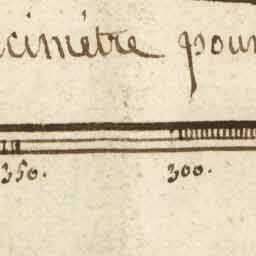 cimétre pour
350. 300.